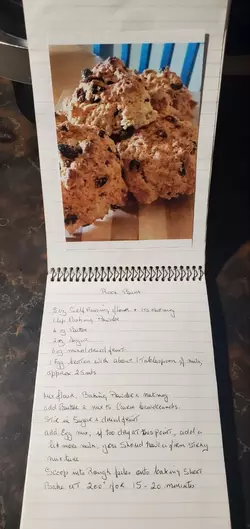 Rock Cakes
8oz Self Raising flour +
1 tsp Baking Powder
4 oz Butter
oz Sugar
6oz mixed dried fruit
1 Egg beaten with about 1 Tablespoon of milk,
approx 2
Mix flour, Baking Powder & nutmeg
add Butter & mix to breadcrumbs
Stir in Sugar & dried fruit
add Egg mix, if too dry at this point, add a
bit more milk, you should have a firm sticky
mixture
Scoop into Rough piles onto baking sheet
Bake at 200° for 15-20 minutes